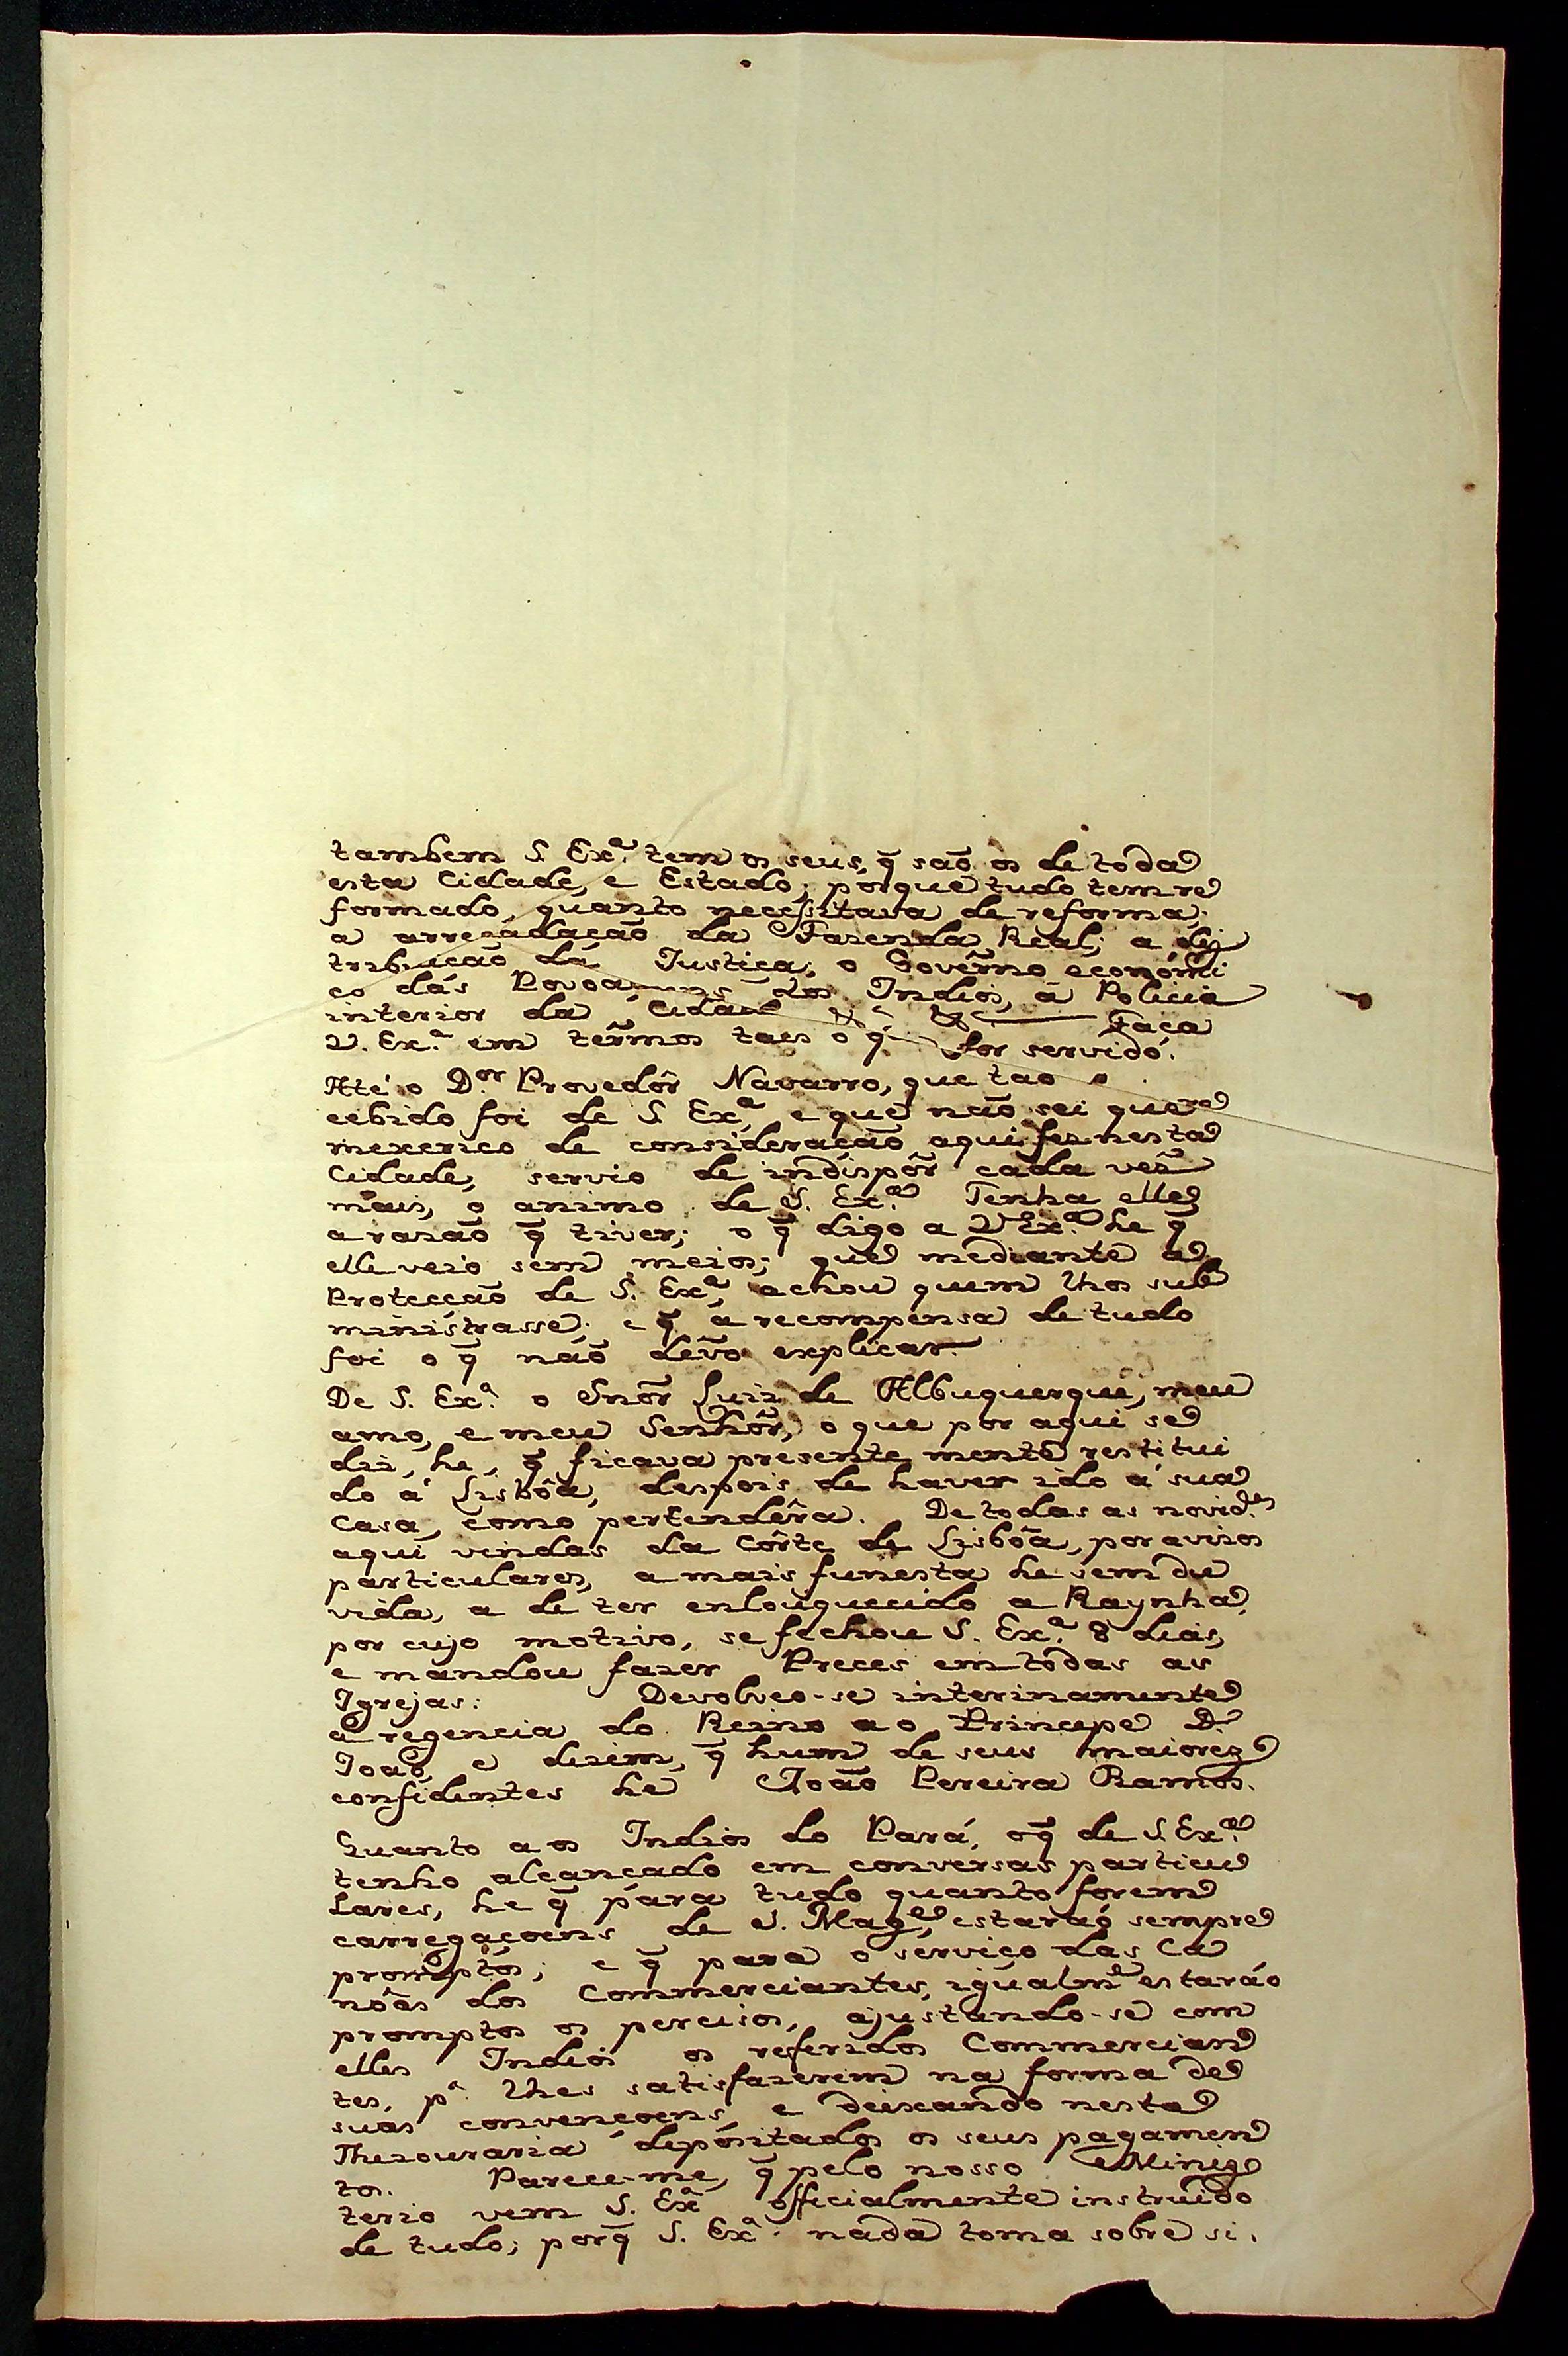 tambem S. Ex.ª tem os seus, q̃ saõ os de toda
esta Cidade, e Estado; porque tudo tem re
formado, quanto necessitava de reforma;
a arrecadaçaõ da Fazenda Real; a dis
tribuiçaõ da Justiça; o Governo económi
co das Povoaçoens dos Indios, a Policia
interior da Cidade &ª &ª Faça
V. Ex.ª em termos taes o q̃ for servido.
Até o D.or Provedôr Navarro, que taõ
cebido foi de S. Ex.ª, e que naõ sei que
mexerico de consideraçaõ aqui fez nesta
Cidade, servio de indispôr cada vez
mais, o animo de S. Ex.ª Tenha elle
a razaõ q̃ tiver; o q̃ digo a V Ex.ª he q̃
elle veio sem meios; que mediante a
Protecçaõ de S. Ex.ª, achou quem lhos sub
ministrasse; e q̃ a recompensa de tudo
foi o q̃ naõ devo explicar.
De S. Ex.ª o Snõr Luiz de Albuquerque, meu
amo, e meu Senhôr, o que por aqui se
diz, he, q̃ ficava presentemente restitui
do á Lisbôa, despois de haver ido á sua
Casa, como pertendêra. De todas as novid.es
aqui vindas da Côrte de Lisbôa, por avisos
particulares, a mais funesta he sem du
vida, a de ter enlouquecido a Raynha,
por cujo motivo, se fechou S. Ex.ª 8 dias,
e mandou fazer Preces em tôdas as
Igrejas: Devolveo-se interinamente
a regencia do Reino ao Principe D.
Joaõ, e dizem, q̃ hum de seus maiores
confidentes he Joaõ Pereira Ramos.
Quanto aos Indios do Pará, o q̃ de S. Ex.ª
tenho alcançado em conversas particu
lares, he q̃ para tudo quanto forem
carregaçoens de S. Mag.e, estaráõ sempre
promptos; e q̃ para o serviço das Ca
nôas dos Commerciantes, igualm.e estaráo
promptos os percisos, ajustando-se com
elles Indios os referidos Commercian
tes, p.ª lhes satisfazerem na forma de
suas convençoens, e deixando nesta
Thezouraria depozitados os seus pagamen
tos. Parece-me, q̃ pelo nosso Minis
terio vem S. Exª officialmente instruido
de tudo; porq̃ S. Exª. nada toma sobre si.